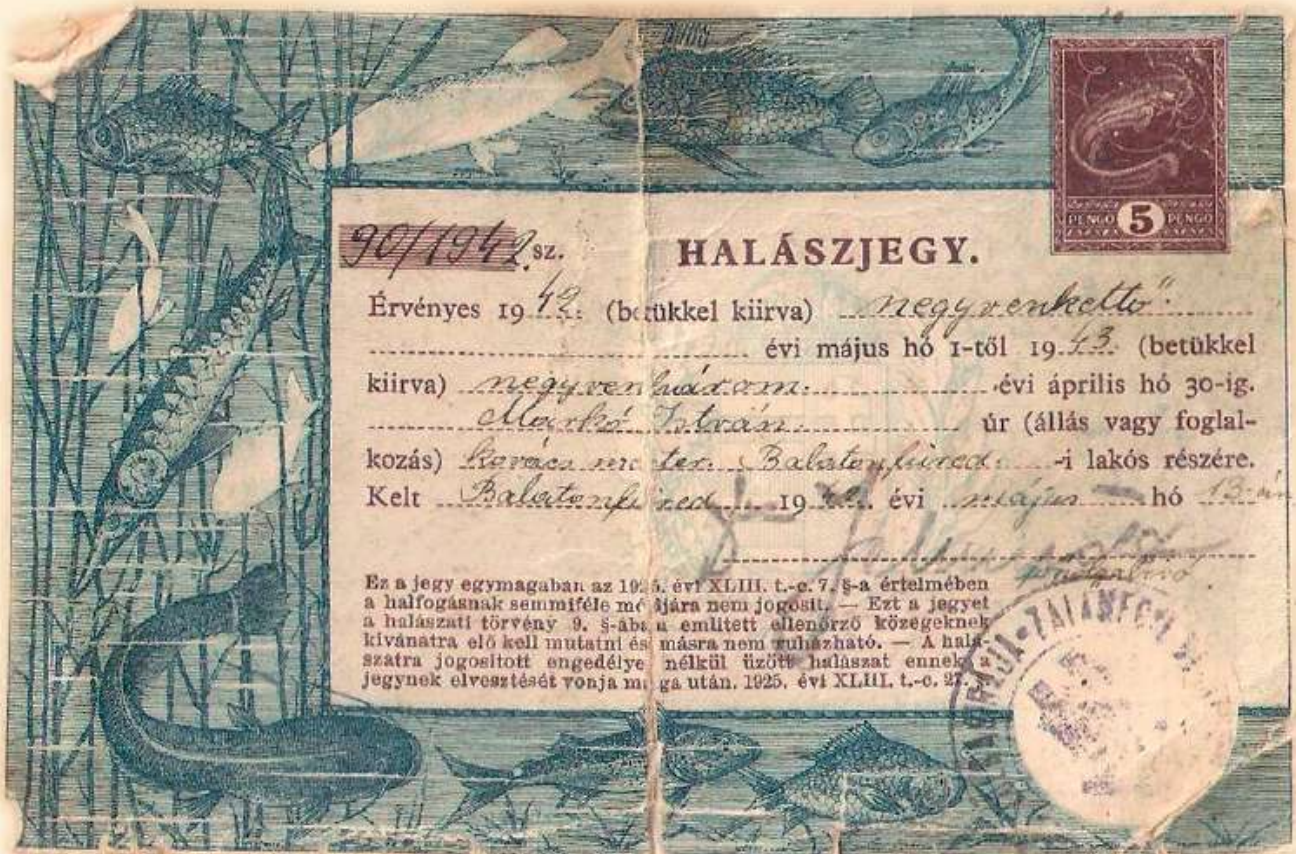 PENGŐ 5 PENGŐ
90/1942 sz.
HALÁSZJEGY.
Érvényes 1942. (betükkel kiirva) negyvenkettő
évi május hó 1-től 1943. (betükkel
kiirva) negyvenhárom. évi április hó 30-ig.
Markó István úr (állás vagy foglal-
kozás) kovács mester. Balatonfüred -i lakós részére.
Kelt Balatonfüred 1942. évi május hó 13-án
Ez a jegy egymagaban az 1925. évi XLIII. t.-c. 7. §-a értelmében
a halfogásnak semmiféle módjára nem jogosit. — Ezt a jegyet
a halászati törvény 9. §-ában emlitett ellenőrző közegeknek
kivánatra elő kell mutatni és másra nem ruházható. — A halá-
szatra jogositott engedélye nélkül üzött halászat ennek a
jegynek elvesztését vonja maga után. 1925. évi XLIII. t.-c. 27.
ZALAMEGYE